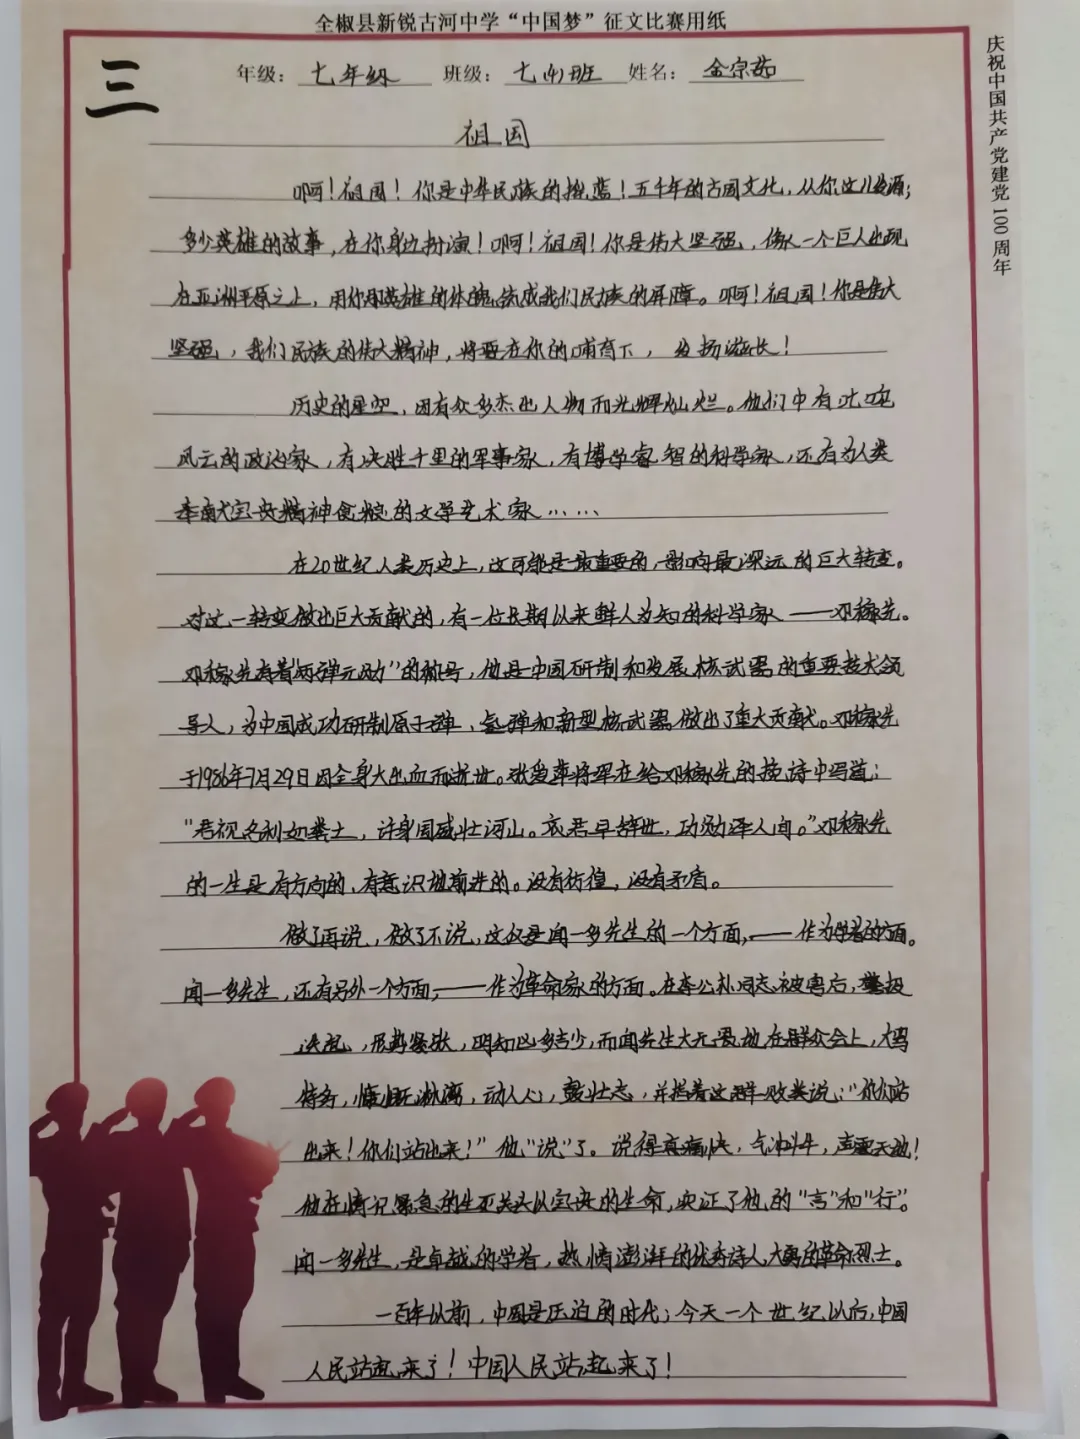 全椒县新锐古河中学“中国梦”征文比赛用纸
三
年级：七年级 班级：七(4)班 姓名：金宗茹
庆祝中国共产党建党100周年
祖国
啊！祖国！你是中华民族的摇蓝！五千年的古国文化，从你这儿发源；
多少英雄的故事，在你身边扮演！啊！祖国！你是伟大坚强，像一个巨人出现
在亚洲平原之上，用你那英雄的体魄筑成我们民族的屏障。啊！祖国！你是伟大
坚强，我们民族的伟大精神，将要在你的哺育下，发扬滋长！
历史的星空，因有众多杰出人物而光辉灿烂。他们中有叱咤
风云的政治家，有决胜千里的军事家，有博学睿智的科学家，还有为人类
奉献宝贵精神食粮的文学艺术家……
在20世纪人类历史上，这可能是最重要的，影响最深远的巨大转变。
对这一转变做出巨大贡献的，有一位长期以来鲜人为知的科学家——邓稼先。
邓稼先有着“两弹元勋”的称号，他是中国研制和发展核武器的重要技术领
导人，为中国成功研制原子弹，氢弹和新型核武器做出了重大贡献。邓稼先
于1986年7月29日因全身大出血而逝世。张爱萍将军在给邓稼先的挽诗中写道：
“君视名利如粪土，许身国威壮河山。哀君早辞世，功勋泽人间。”邓稼先
的一生是有方向的，有意识地前进的。没有彷徨，没有矛盾。
做了再说，做了不说，这仅是闻一多先生的一个方面，——作为学者的方面。
闻一多先生，还有另外一个方面，——作为革命家的方面。在李公朴同志被害后，警报
迭起，形势紧张，明知凶多吉少，而闻先生大无畏地在群众会上，大骂
特务，慷慨淋漓，动人心，鼓壮志，并指着这群败类说：“你们站
出来！你们站出来！”他“说”了。说得真痛快，气冲斗牛，声震天地！
他在情况紧急的生死关头以宝贵的生命，实证了他的“言”和“行”。
闻一多先生，是卓越的学者，热情澎湃的优秀诗人，大勇的革命烈士。
一百年以前，中国是压迫的时代；今天一个世纪以后，中国
人民站起来了！中国人民站起来了！